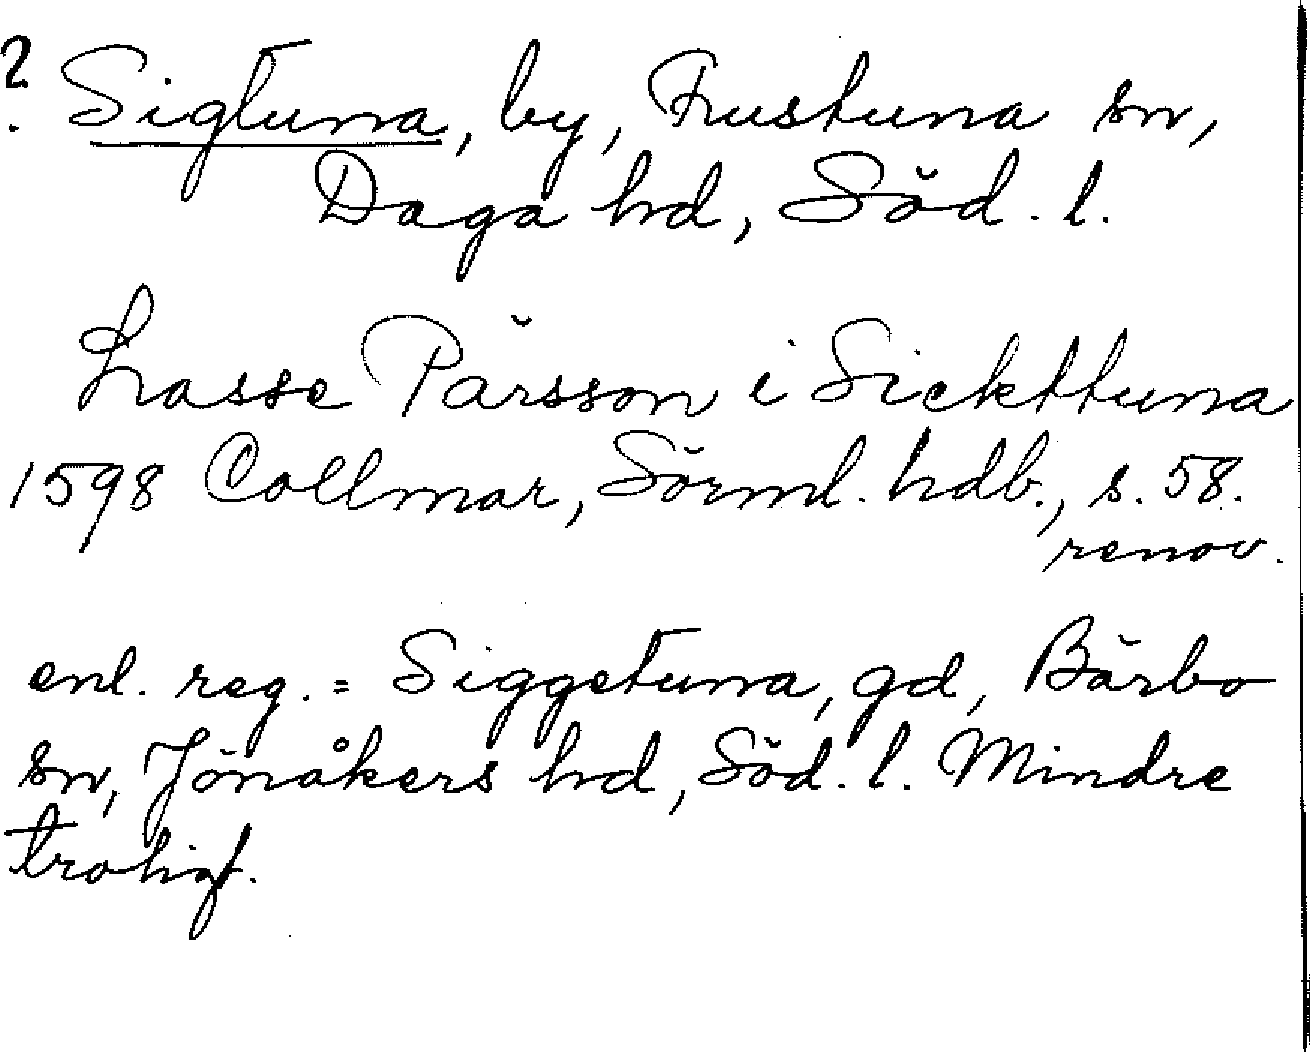 ? Sigtuna, by, Frustuna sn,
Daga hd, Söd. l.
Lasse Pärsson i Sickttuna
1598 Collmar, Sörml. hdb., s. 58.
renov.
enl. reg. = Siggetuna, gd, Bärbo
sn, Jönåkers hd, Söd. l. Mindre
troligt.